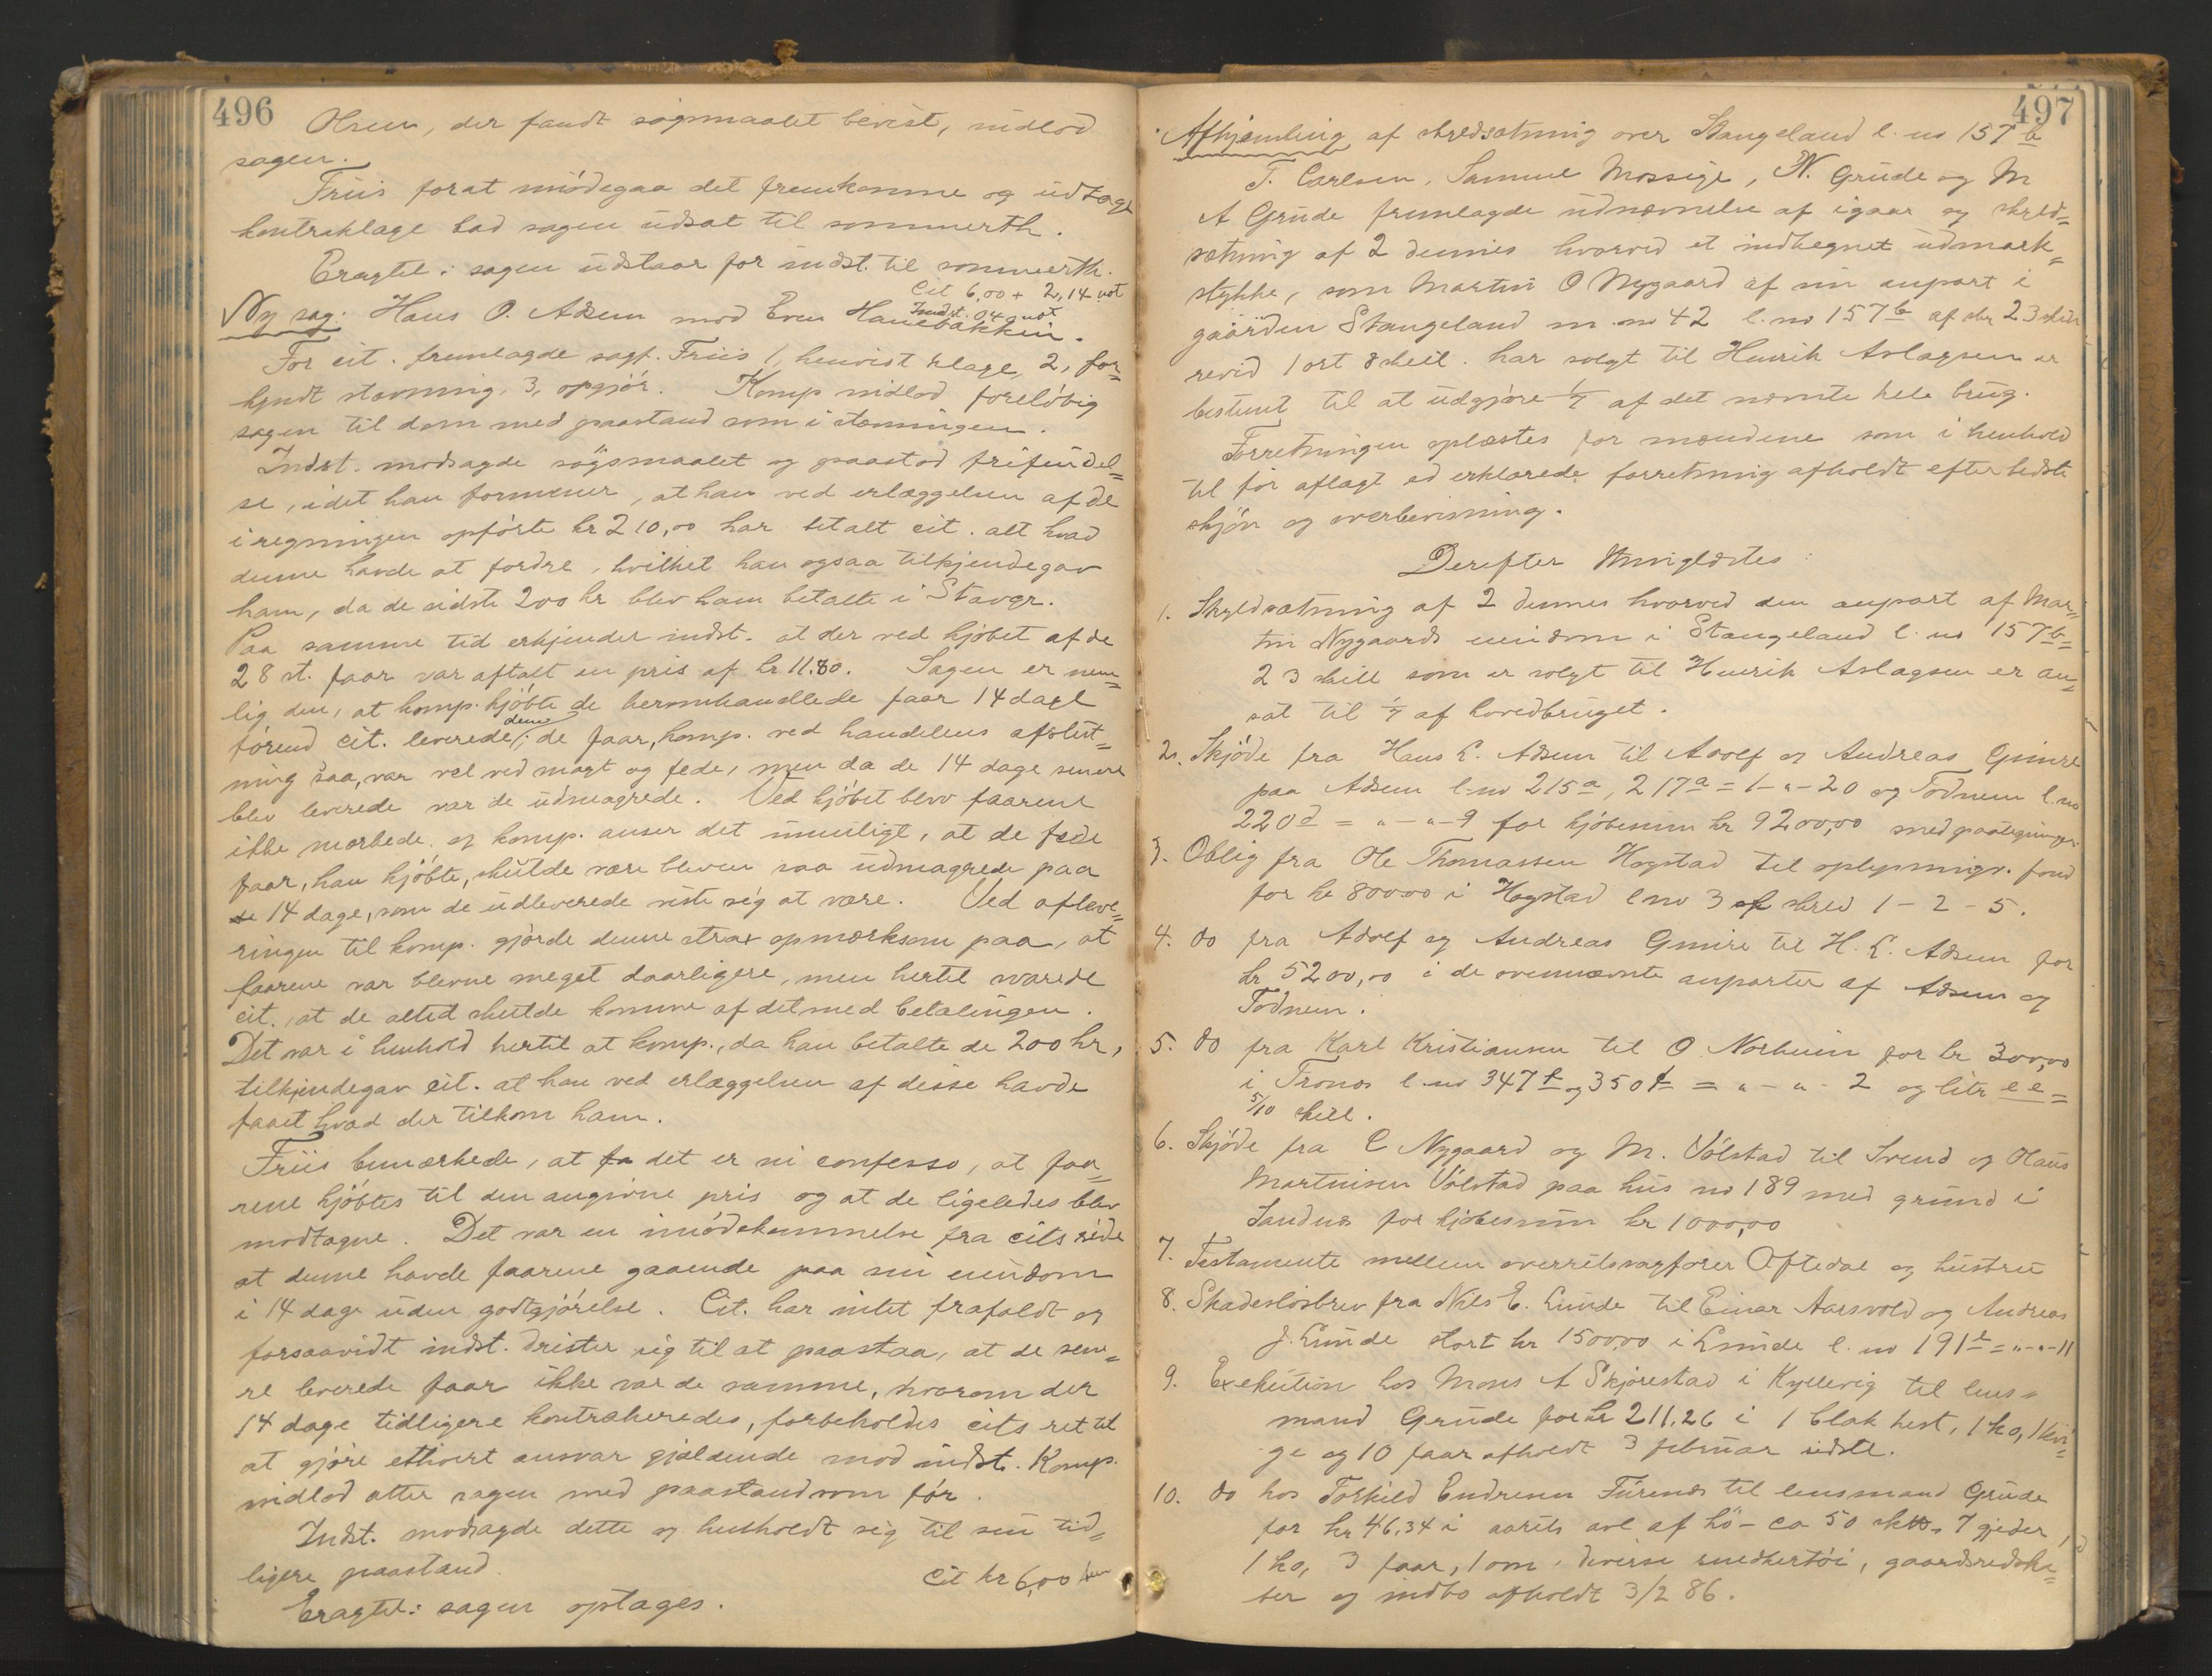 496
Olsen, der fandt søgsmaalet bevist, indlod
sagen.
Friis forat imødegaa det fremkomne og udtage
kontraklage bad sagen udsat til sommerth.
Eragtet: sagen udstaar for indst. til sommerth.
Cit 6,00 + 2,14 not
Indst. 04 not
Ny sag: Hans O. Adsen mod Even Hanebakken.
For cit. fremlagde sagf. Friis 1, henvist klage, 2, for=
kyndt stævning, 3, opgjør. Komp indlod foreløbig
sagen til dom med paastand som i stævningen.
Indst. modsagde søgsmaalet og paastod frifindel=
se, idet han formener, at han ved erlæggelsen af de
i regningen opførte kr 210,00 har betalt cit. alt hvad
denne havde at fordre, hvilket han ogsaa tilkjendegav
ham, da de sidste 200 kr blev ham betalte i Stavgr.
Paa samme tid erkjender indst. at der ved kjøbet af de
28 st. faar var aftalt en pris af kr 11.80. Sagen er nem=
lig den, at komp. kjøbte de heromhandlede faar 14 dage
førend cit. leverede dem; de faar, komp. ved handelens afslut=
ning saa, var vel ved magt og fede, men da de 14 dage senere
blev leverede var de udmagrede. Ved kjøbet blev faarene
ikke mærkede og komp. anser det umuligt, at de fede
faar, han kjøbte, skulde være bleven saa udmagrede paa
de 14 dage, som de udleverede viste sig at være. Ved afleve=
ringen til komp. gjorde denne strax opmærksom paa, at
faarene var blevne meget daarligere, men hertil svarede
cit., at de altid skulde komme af det med betalingen.
Det var i henhold hertil at komp., da han betalte de 200 kr,
tilkjendegav cit. at han ved erlæggelsen af disse havde
faaet hvad der tilkom ham.
Friis bemærkede, at fa det er in confesso, at faa=
rene kjøbtes til den angivne pris og at de ligeledes blev
modtagne. Det var en imødekommelse fra cits side
at denne havde faarene gaaende paa sin eiendom
i 14 dage uden godtgjørelse. Cit. har intet frafaldt og
forsaavidt indst. drister sig til at paastaa, at de sene=
re leverede faar ikke var de samme, hvorom der
14 dage tidligere kontraheredes, forbeholdes cits ret til
at gjøre ethvert ansvar gjældende mod indst. Komp.
indlod atter sagen med paastand som før.
Indst. modsagde dette og henholdt sig til sin tid=
ligere paastand.
Cit kr 6,00
Eragtet: sagen optages.
497
Afhjemling af skyldsætning over Stangeland l. no 157 b
T. Carlsen, Samuel Mossige, N. Grude og M
A Grude fremlagde udnævnelse af igaar og skyld=
sætning af 2 dennes hvorved et indhegnet udmark=
stykke, som Martin O Nygaard af sin anpart i
gaarden Stangeland m. no 42 l. no 157 b af skr 23 skill
revid 1 ort 8 skill. har solgt til Henrik Aslagsen er
bestemt til at udgjøre 1/7 af det nævnte hele brug.
Forretningen oplæstes for mændene som i henhold
til før aflagt ed erklærede forretning afholdt efter bedste
skjøn og overbevisning.
Derefter thinglæstes:
1. Skyldsætning af 2 dennes hvorved den anpart af Mar=
tin Nygaards eiendom i Stangeland l. no 157 b =
23 skill som er solgt til Henrik Aslagsen er an=
sat til 1/7 af hovedbruget.
2. Skjøde fra Hans L. Adsen til Adolf og Andreas Gimre
paa Adsen l. no 215 a, 217 a = 1 - " - 20 og Todnem l. no
220 d = " - " - 9 for kjøbesum kr 9200,00 med paategninger.
3. Oblig fra Ole Thomassen Hogstad til oplysningv. fond
for kr 800,00 i Hogstad l no 3 af skyld 1 - 2 - 5.
4. do fra Adolf og Andreas Gimre til H. L. Adsen for
kr 5200,00 i de ovennævnte anparter af Adsen og
Todnem.
5. do fra Karl Kristiansen til O Norheim for kr 300,00
i Tronæs l. no 347 f og 350 f = " - " - 2 og litr e e =
5/10 skill.
6. Skjøde fra C Nygaard og M. Vølstad til Svend og Olaus
Martinisen Vølstad paa hus no 189 med grund i
Sandnæs for kjøbesum kr 1000,00
7. Testamente mellem overretssagfører Oftedal og hustru
8. Skadesløsbrev fra Nils E. Lunde til Einar Aarsvold og Andreas
J. Lunde stort kr 1500,00 i Lunde l. no 191 = " - " - 11
9. Exekution hos Mons A Skjørestad i Kyllevig til lens=
mand Grude for kr 211,26 i 1 blak hest, 1 ko, 1 kvi=
ge og 10 faar afholdt 3 februar sidstl.
10. do hos Torkild Endresen Furenes til lensmand Grude
for kr 46,34 i aarets avl af hø - ca 50 7 gjeder,
1 ko, 3 faar, 1 om, diverse snedkertøi, gaardsredska=
ber og indbo afholdt 3/2 86.